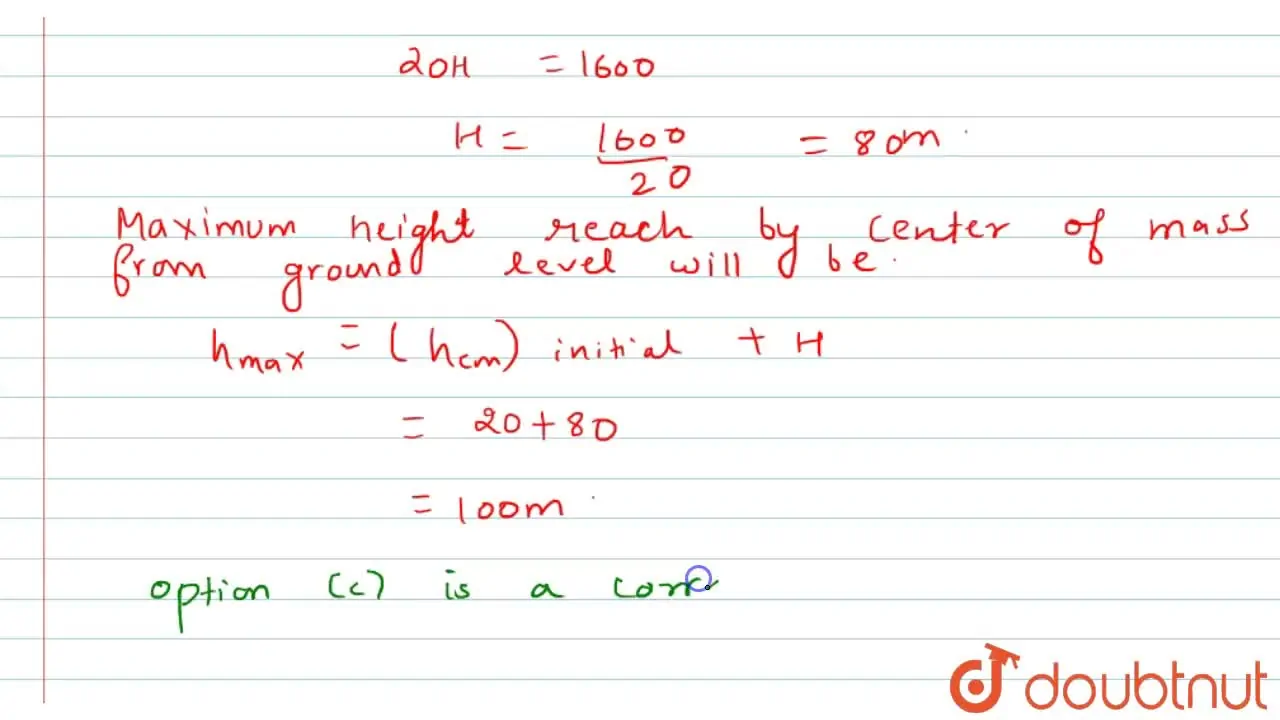 20H = 1600
H = 1600/20 = 80m
Maximum height reach by center of mass
from ground level will be.
hmax = (hcm) initial + H
= 20 + 80
= 100m
option (c) is a corr
doubtnut